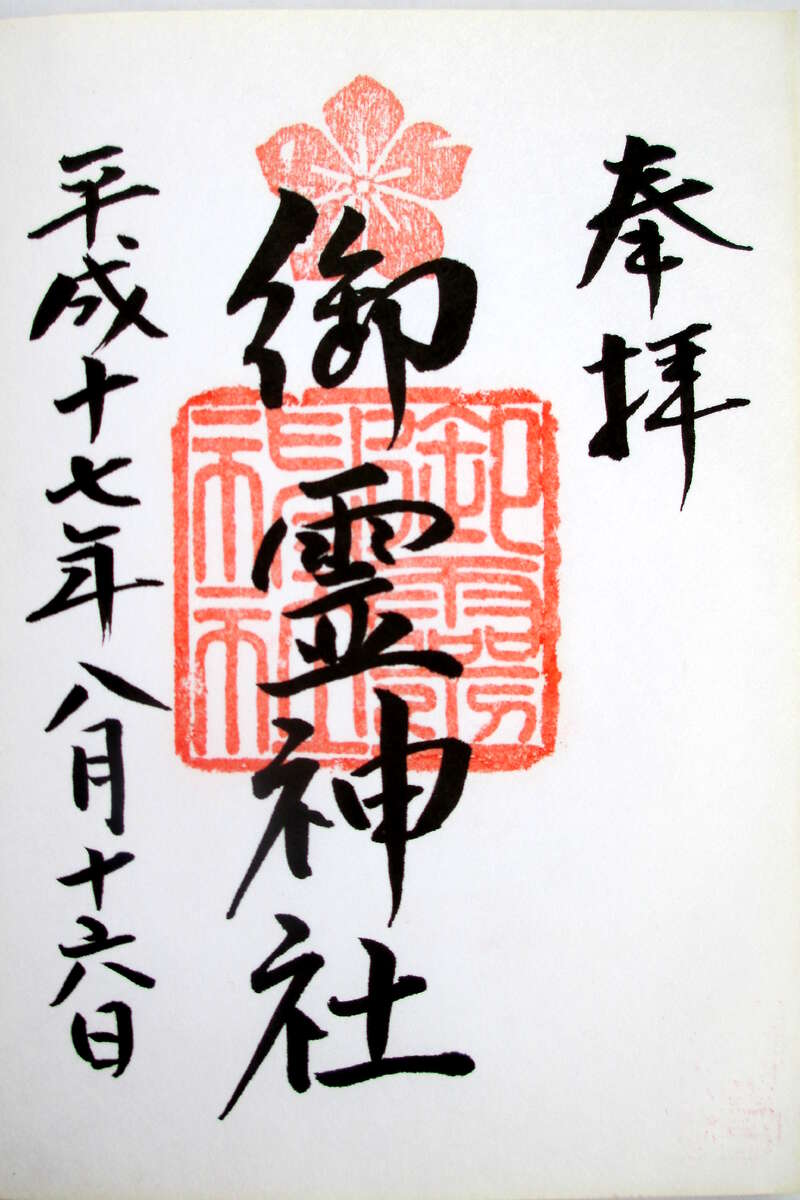 奉拝
御霊神社
御霊神社
平成十七年八月十六日